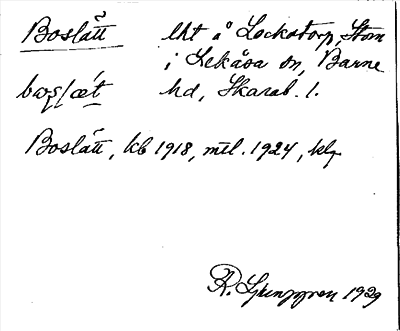 Boslätt lht å Lockstorp, Stom
i Lekåsa sn, Barne
hd, Skarab. l.
Boslätt, kb 1918, mtl. 1924, klg
R. Ljunggren 1929